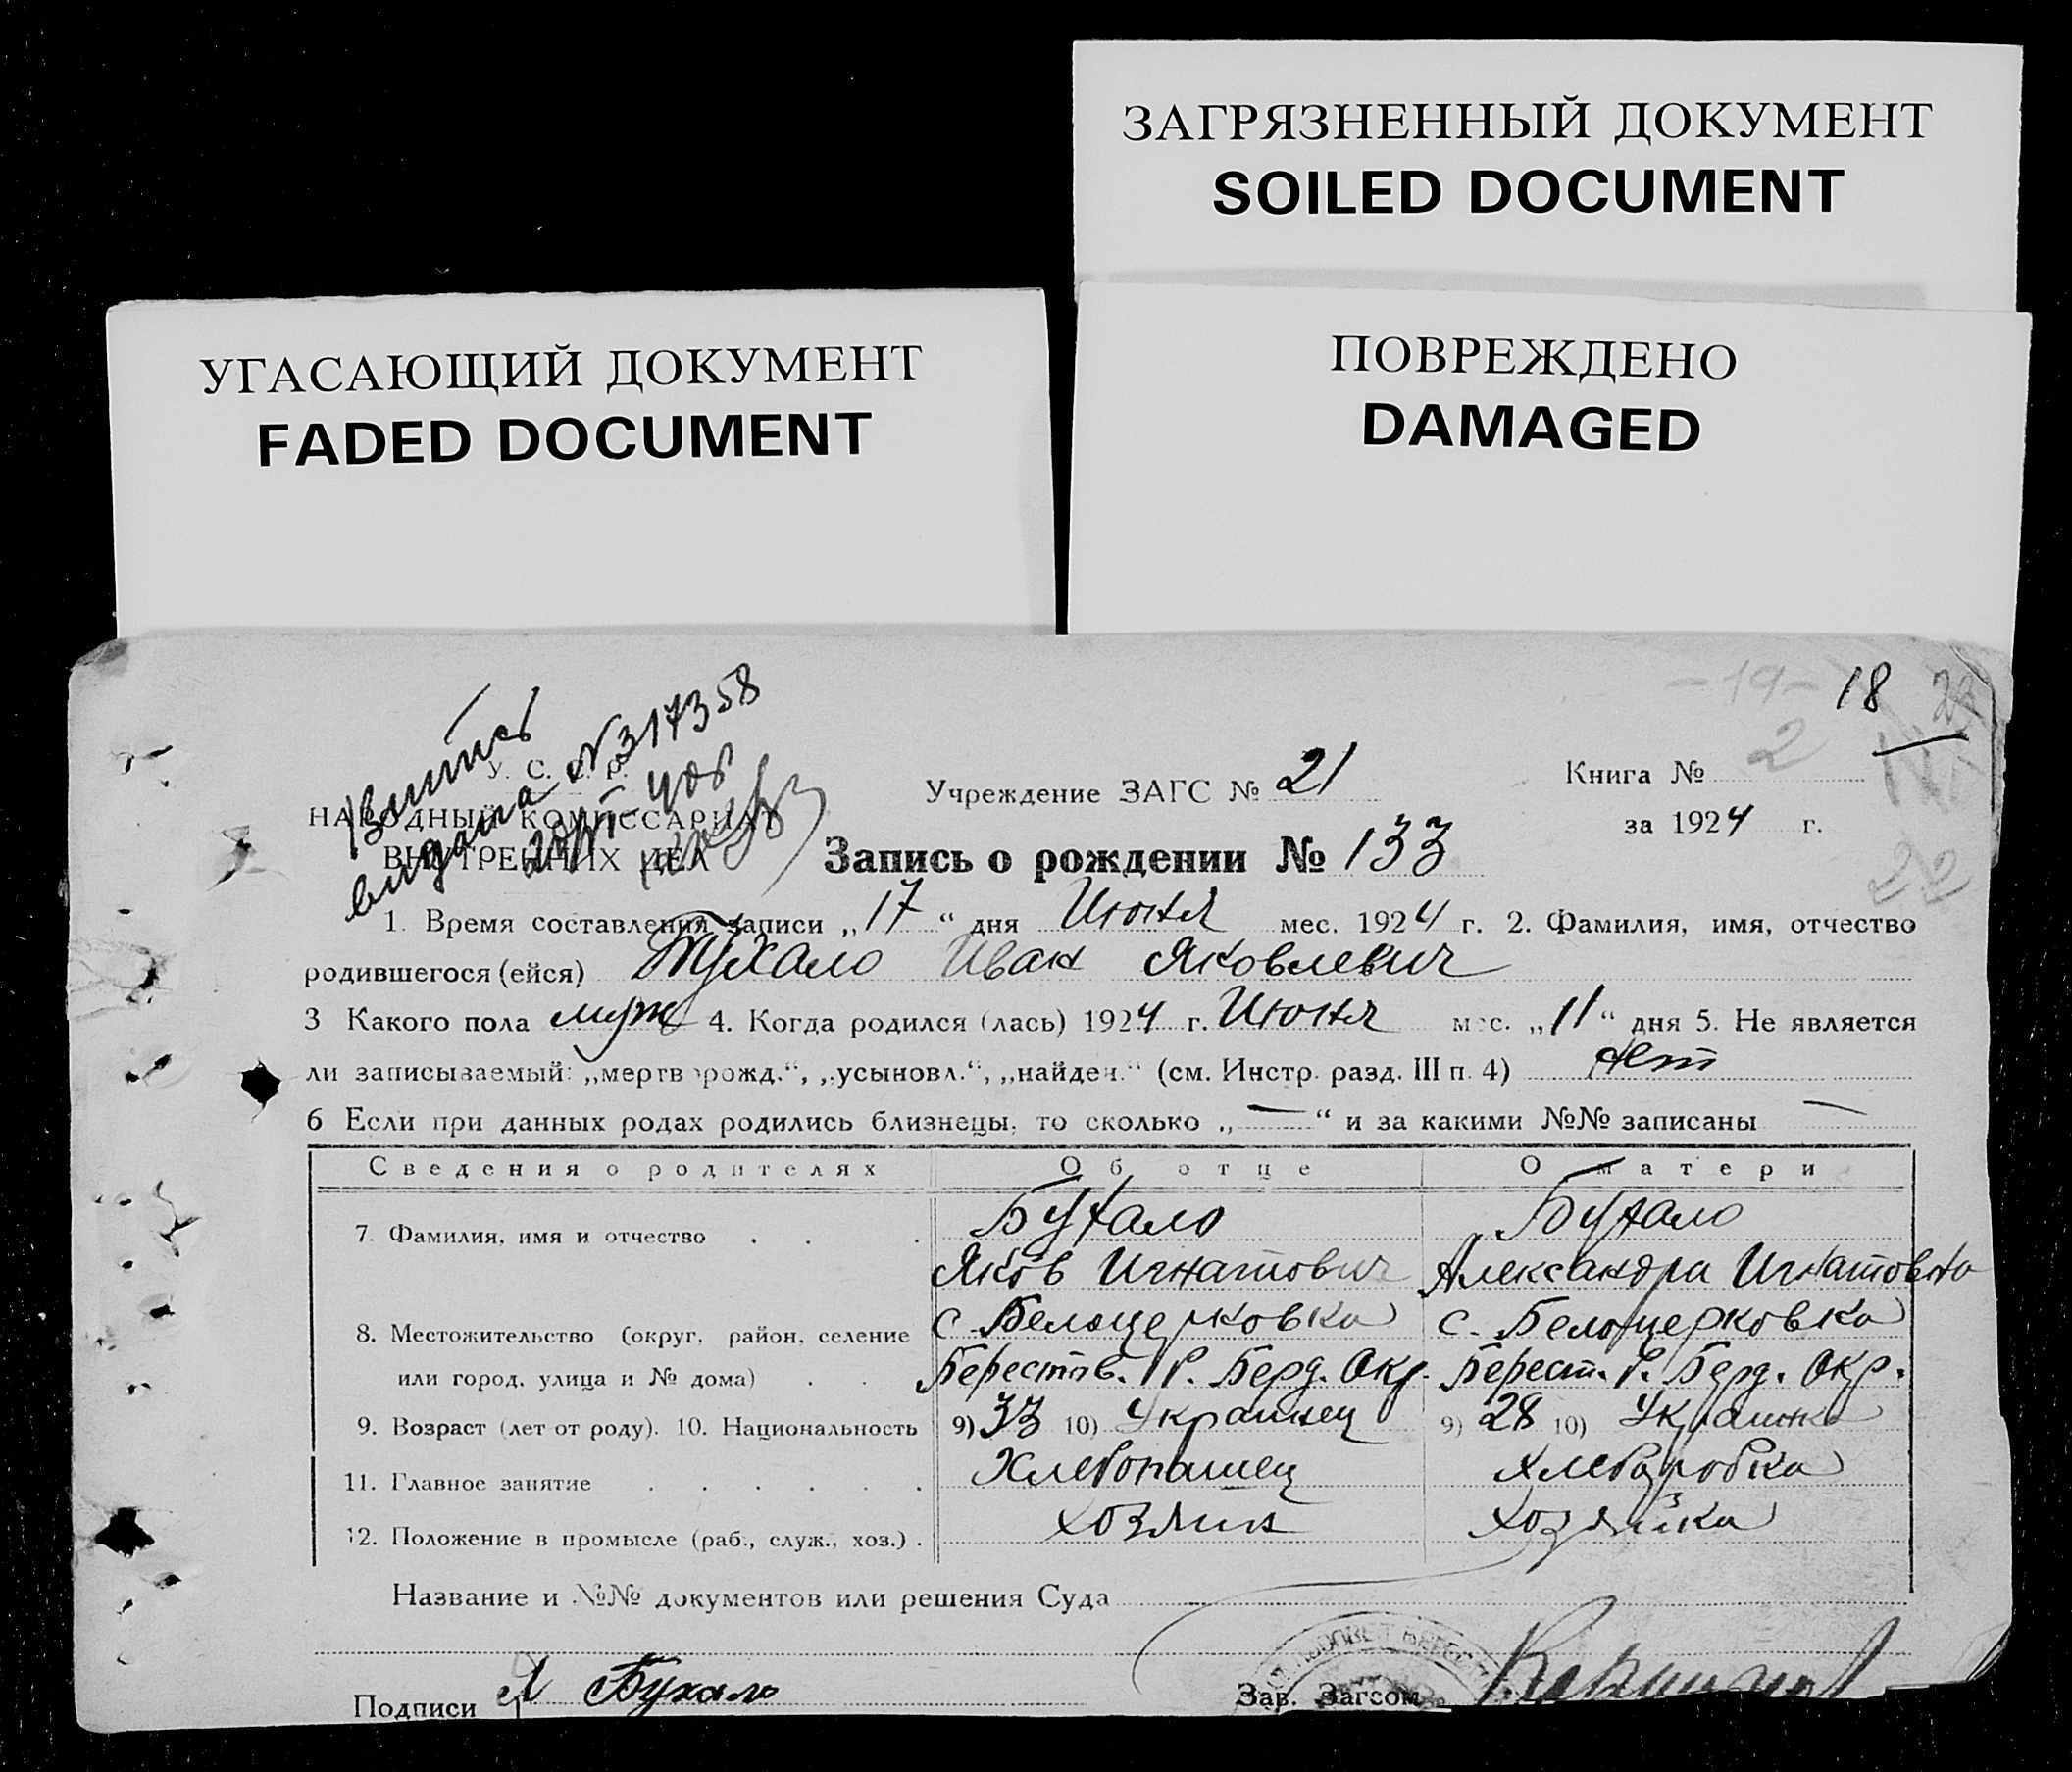 ЗАГРЯЗНЕННЫЙ ДОКУМЕНТ
SOILED DOCUMENT
УГАСАЮЩИЙ ДОКУМЕНТ
FADED DOCUMENT
ПОВРЕЖДЕНО
DAMAGED
-19- 18
видана № 317358
У. С. С. Р.
НАРОДНЫЙ КОМИССАРИАТ
ВНУТРЕННИХ ДЕЛ
Учреждение ЗАГС № 21
Книга № 2
за 1924 г.
22
Запись о рождении № 133
1. Время составления записи „17“ дня Июня мес. 1924 г. 2. Фамилия, имя, отчество
родившегося (ейся) Бухало Иван Яковлевич
3 Какого пола муж 4. Когда родился (лась) 1924 г. Июня мес. „11“ дня 5. Не является
ли записываемый: „мертворожд.“, „усыновл.“, „найден.“ (см. Инстр. разд. III п. 4) Нет
6 Если при данных родах родились близнецы, то сколько „—“ и за какими №№ записаны —
Сведения о родителях Об отце О матери
7. Фамилия, имя и отчество . . . Бухало Бухало
Яков Игнатович Александра Игнатовна
8. Местожительство (округ, район, селение с. Белоцерковка с. Белоцерковка
или город, улица и № дома) . . Берестов. Р. Берд. Окр. Берест. Р. Берд. Окр.
9. Возраст (лет от роду). 10. Национальность 9) 33 10) Украинец 9) 28 10) Украинка
11. Главное занятие . . . . . . Хлебопашец Хлеборобка
12. Положение в промысле (раб., служ., хоз.) . хозяин хозяйка
Название и №№ документов или решения Суда
Подписи Я Бухало Зав. Загсом